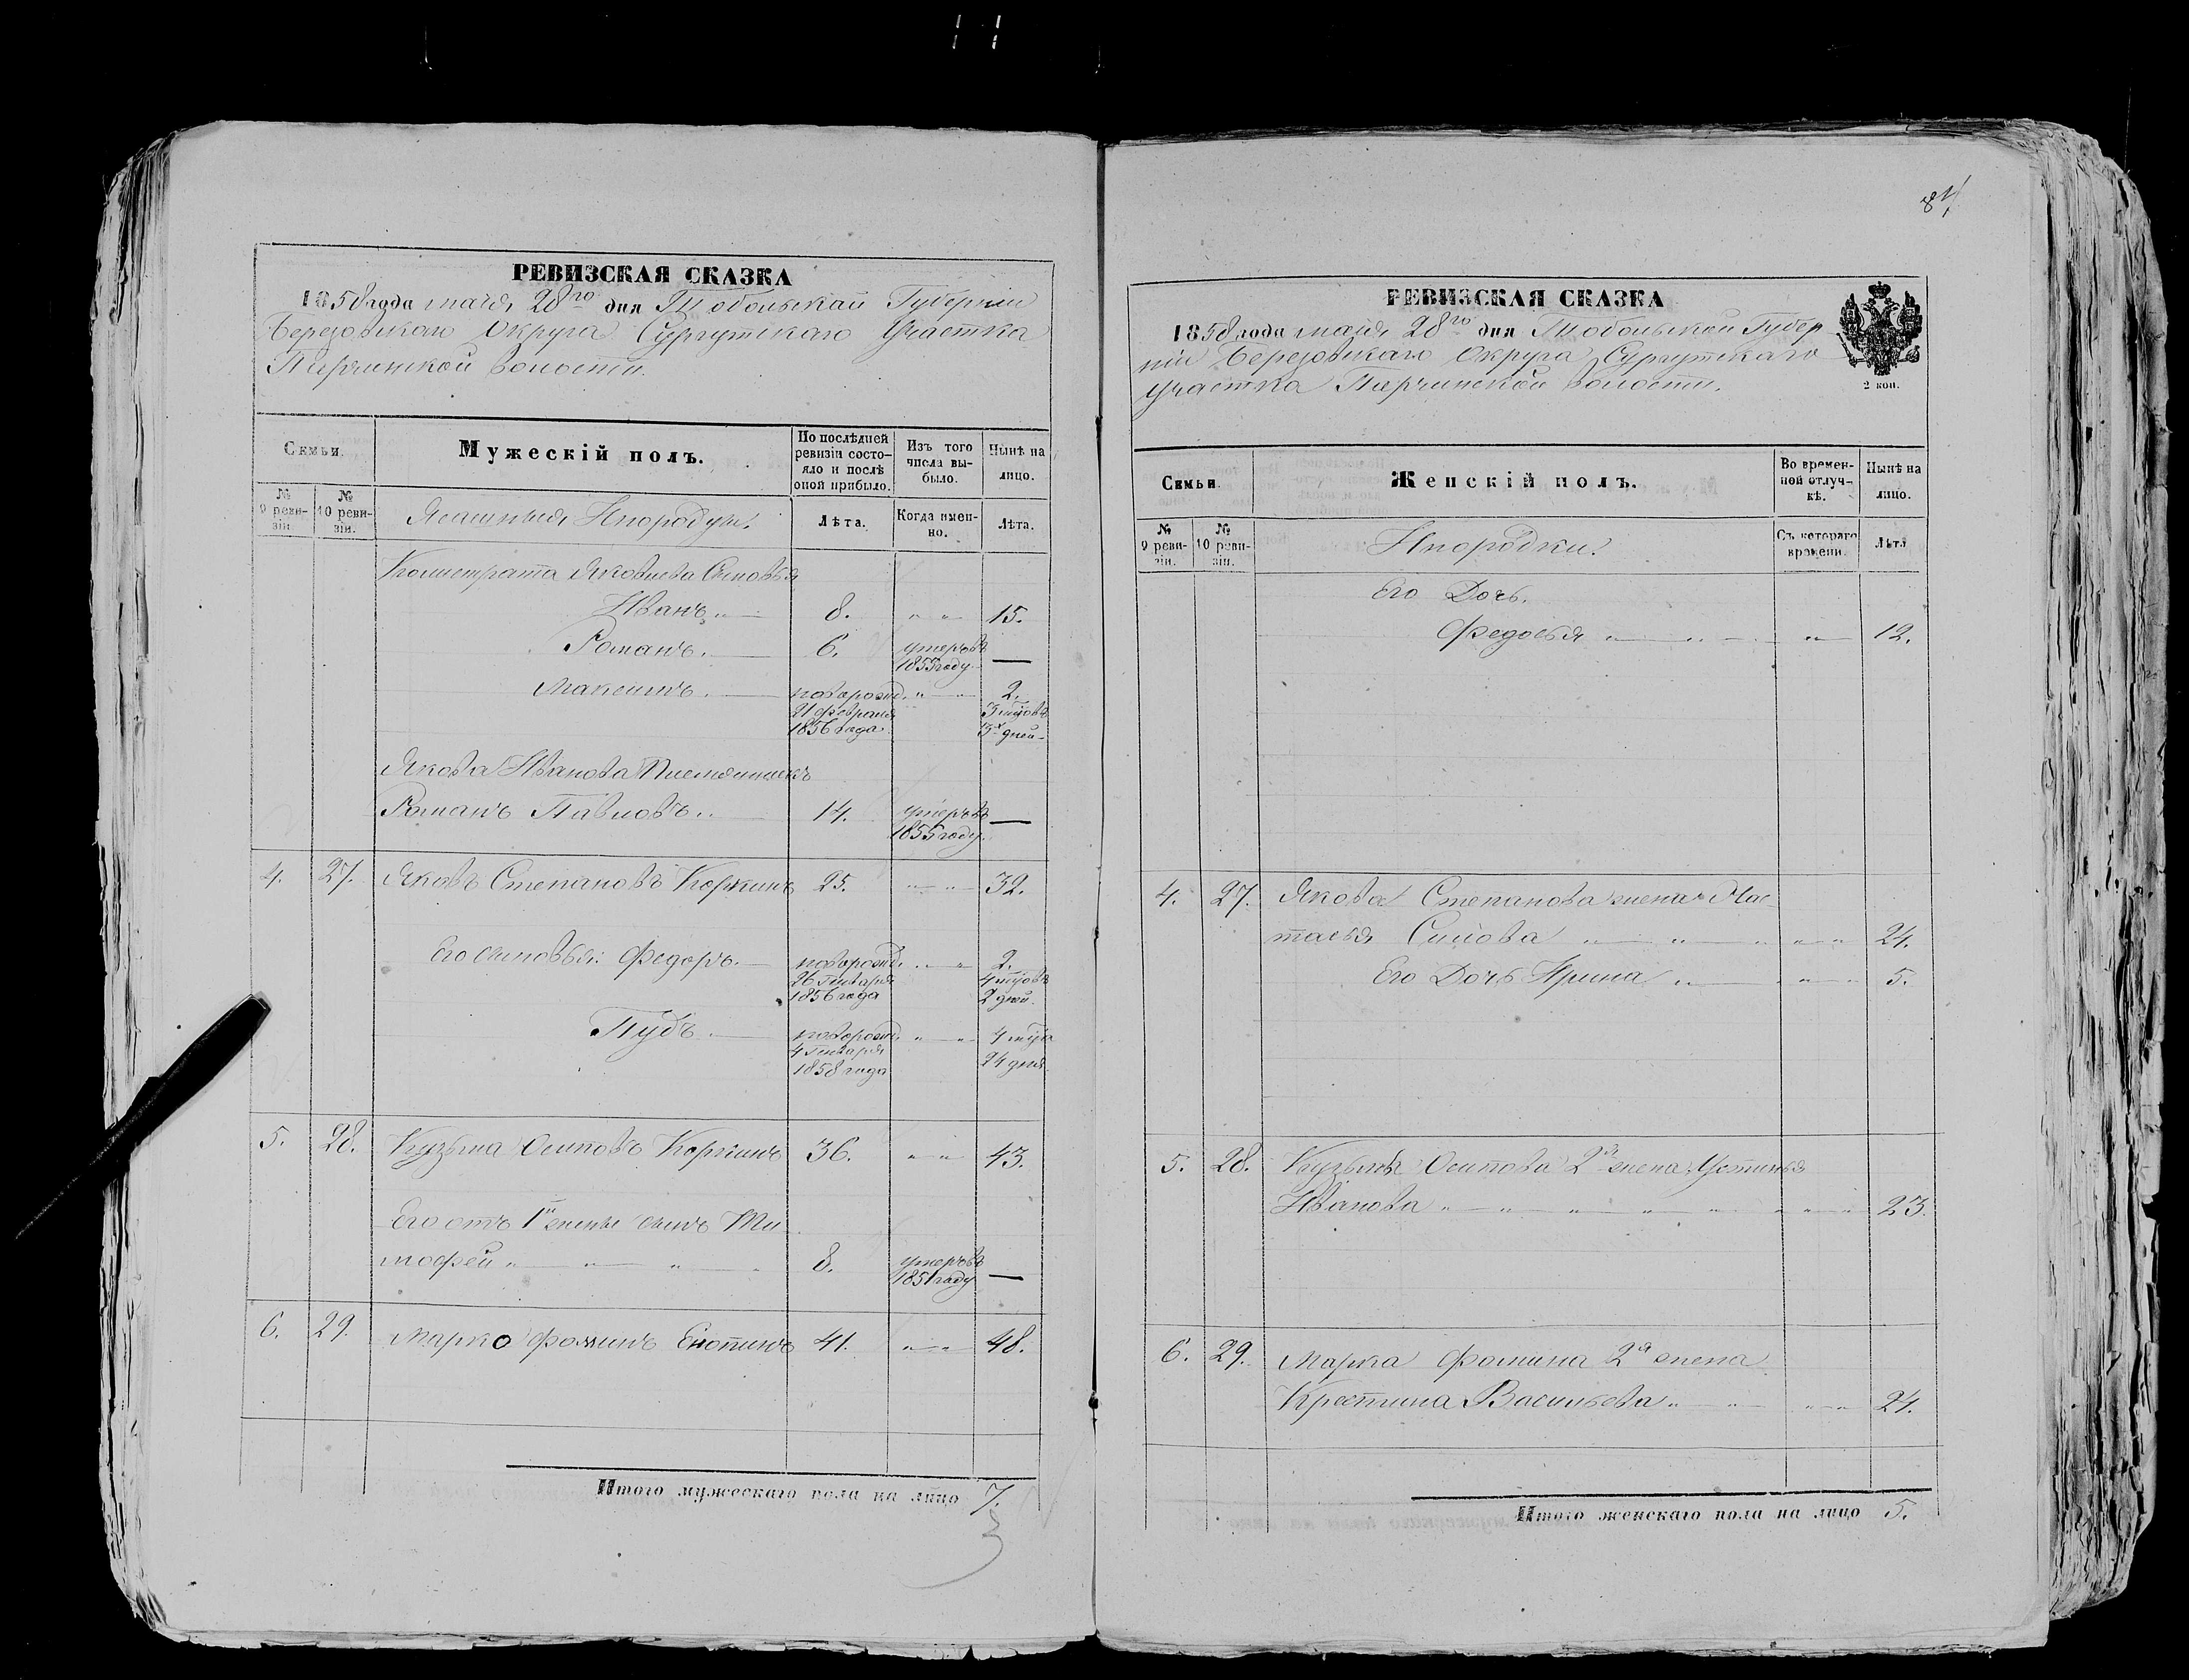 84
РЕВИЗСКАЯ СКАЗКА
1858 года маія 28го дня Тобольской Губерніи
Березовскаго Округа Сургутскаго Участка
волости.
Семьи.
Мужескій полъ.
По послѣдней ревизіи состояло и послѣ оной прибыло.
Изъ того числа выбыло.
Нынѣ на лицо.
№ 9 ревизіи.
№ 10 ревизіи.
Ясашныя Инородцы.
Лѣта.
Когда именно.
Лѣта.
Яковлева Сыновья
Иванъ 8. " " 15.
Романъ. 6. умеръ въ —
1853 году
Максимъ. новорожд. " " 2.
21 февраля 3 мцовъ
1856 года дней
Якова Иванова Племянникъ
Романъ Павловъ 14. умеръ въ —
1855 году
4. 27. Яковъ Степановъ Коркинъ 25. " " 32.
Его сыновья: Федоръ. новорожд. " " 2.
26 Генваря 4 мцовъ
1856 года 2 дней.
Пудъ новорожд. " " 4 мцa
4 Генваря 24 дня
1858 года
5. 28. Кузьма Осиповъ Коркинъ 36. " " 43.
Его отъ 1й жены сынъ Ти
мофей " " " 8. умеръ въ —
1851 году
6. 29. Марко Фоминъ 41. " " 48.
Итого мужескаго пола на лицо 7.
РЕВИЗСКАЯ СКАЗКА
1858 года маія 28го дня Тобольской Губер
ніи Березовскаго Округа Сургутскаго
участка волости.
2 коп.
Семьи.
Женскій полъ.
Во временной отлучкѣ.
Нынѣ на лицо.
№ 9 ревизіи.
№ 10 ревизіи.
Инородки.
Съ котораго времени.
Лѣта
Его Дочь.
Федосья " " " 12.
4. 27. Якова Степанова жена Нас
тасья Силова " " " " " 24.
Его Дочь Ирина " " " 5.
5. 28. Кузьмы Осипова 2я жена Устинья
Иванова " " " " " " " 23.
6. 29. Марка Фомина 2я жена
Крестина Васильева " " " " 24.
Итого женскаго пола на лицо 5.